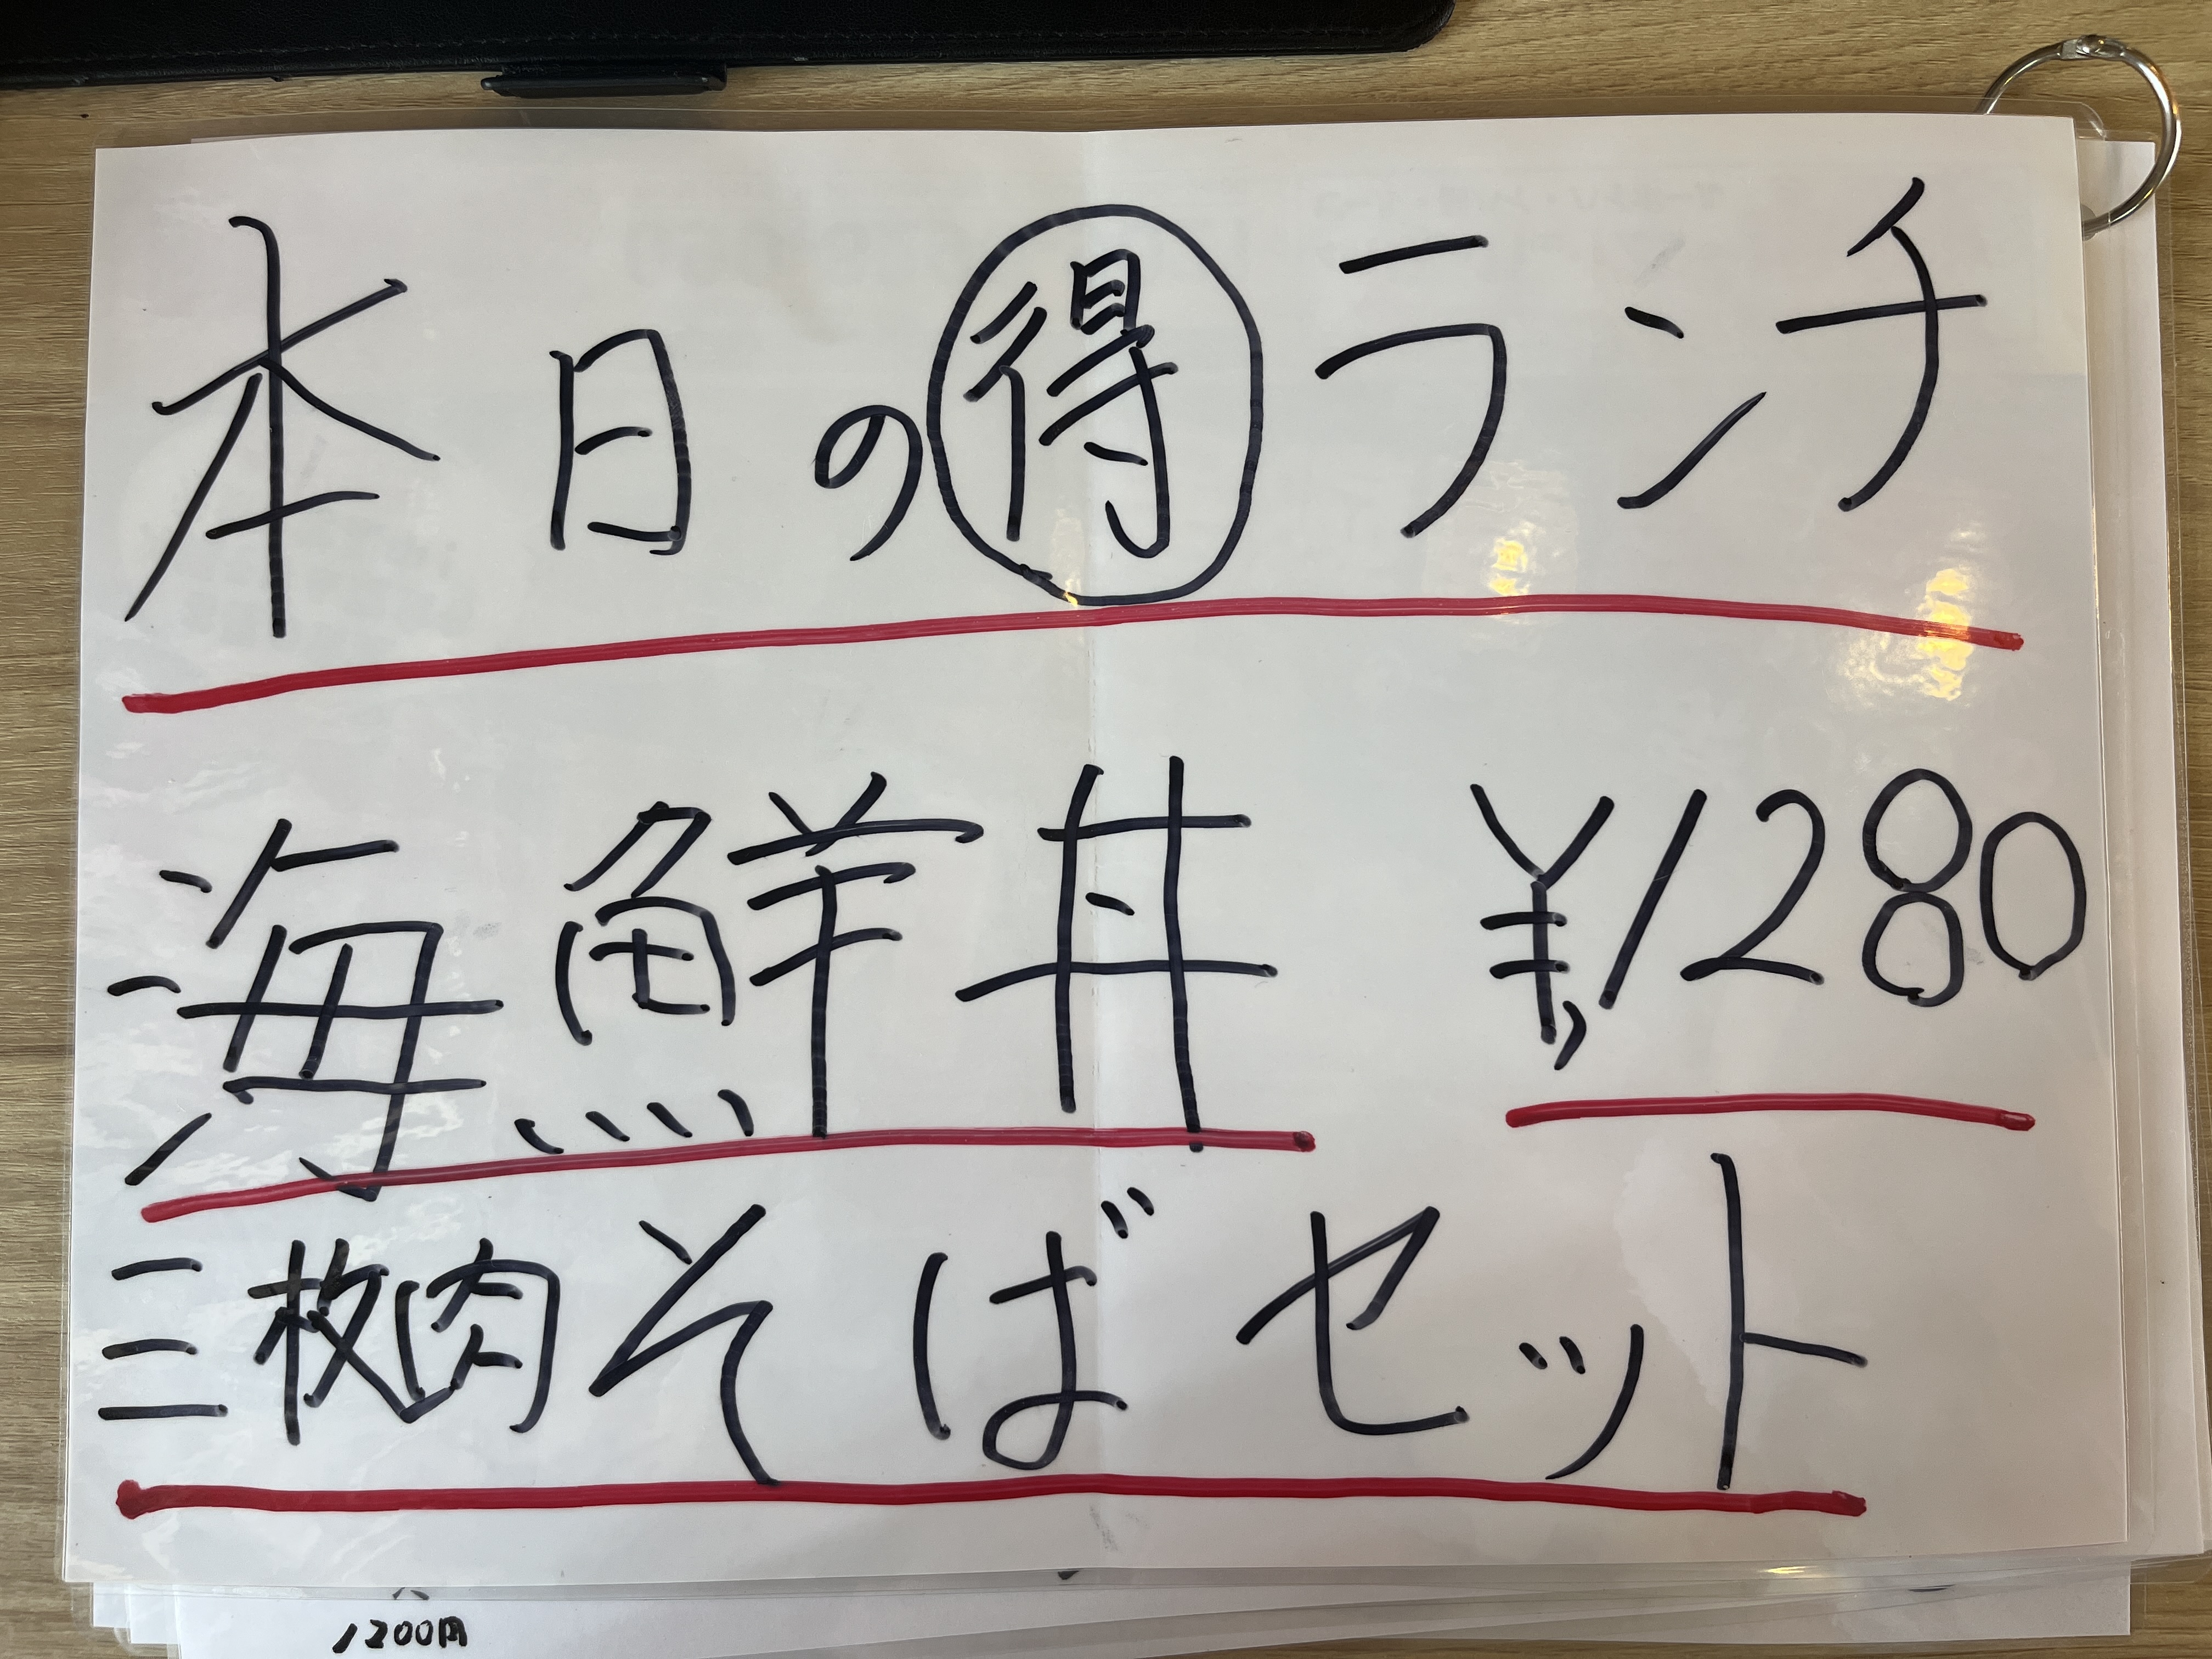 本日の得ランチ
海鮮丼 ¥,1280
三枚肉そばセット
1200円